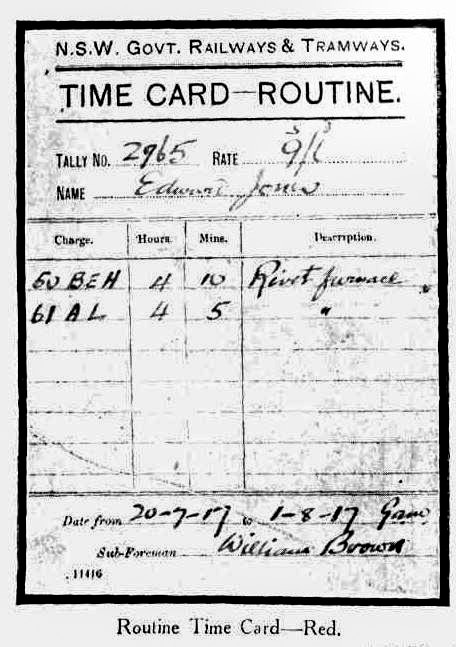 N.S.W. GOVT. RAILWAYS & TRAMWAYS.
TIME CARD—ROUTINE.
TALLY NO. 2965 RATE 9/6
NAME Edward Jones
Charge. Hours. Mins. Description.
50 BEH 4 10 Rivet furnace
61 A L 4 5 "
Date from 20-7-17 to 1-8-17
Sub-Foreman William Brown
11416
Routine Time Card—Red.